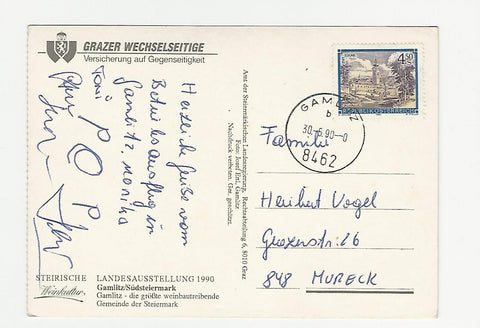 GRAZER WECHSELSEITIGE
Versicherung auf Gegenseitigkeit
Herzliche Grüße vom
Betriebsausflug in
Gamlitz, Monika
Toni
P O P
STEIRISCHE LANDESAUSSTELLUNG 1990
Weinkultur
Gamlitz/Südsteiermark
Gamlitz - die größte weinbautreibende
Gemeinde der Steiermark
Aus der Steiermärkischen Landesregierung, Rechtsabteilung 6, 8010 Graz
Foto: Josef Ehr, Gamlitz
Nachdruck verboten. Ges. geschützt.
4,50
REPUBLIK ÖSTERREICH
GAMLITZ
b
30.-5.90-0
8462
Familie
Heribert Vogel
Grazerstr. 26
848 MURECK